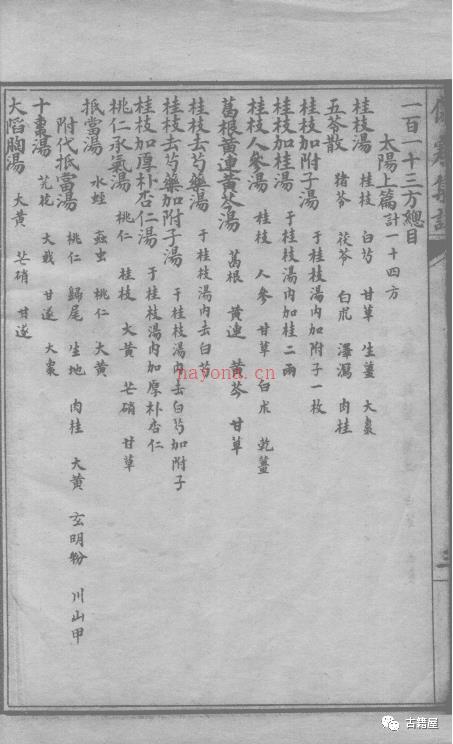 傷寒集註
一百一十三方總目
太陽上篇計一十四方
桂枝湯 桂枝 白芍 甘草 生薑 大棗
五苓散 豬苓 茯苓 白朮 澤瀉 肉桂
桂枝加附子湯 于桂枝湯內加附子一枚
桂枝加桂湯 于桂枝湯內加桂二兩
桂枝人參湯 桂枝 人參 甘草 白朮 乾薑
葛根黃連黃芩湯 葛根 黃連 黃芩 甘草
桂枝去芍藥湯 于桂枝湯內去白芍
桂枝去芍藥加附子湯 于桂枝湯內去白芍加附子
桂枝加厚朴杏仁湯 于桂枝湯內加厚朴杏仁
桃仁承氣湯 桃仁 桂枝 大黃 芒硝 甘草
抵當湯 水蛭 蝱虫 桃仁 大黃
附代抵當湯 桃仁 歸尾 生地 肉桂 大黃 玄明粉 川山甲
十棗湯 芫花 大戟 甘遂 大棗
大陷胸湯 大黃 芒硝 甘遂
nayona.cn
古籍屋